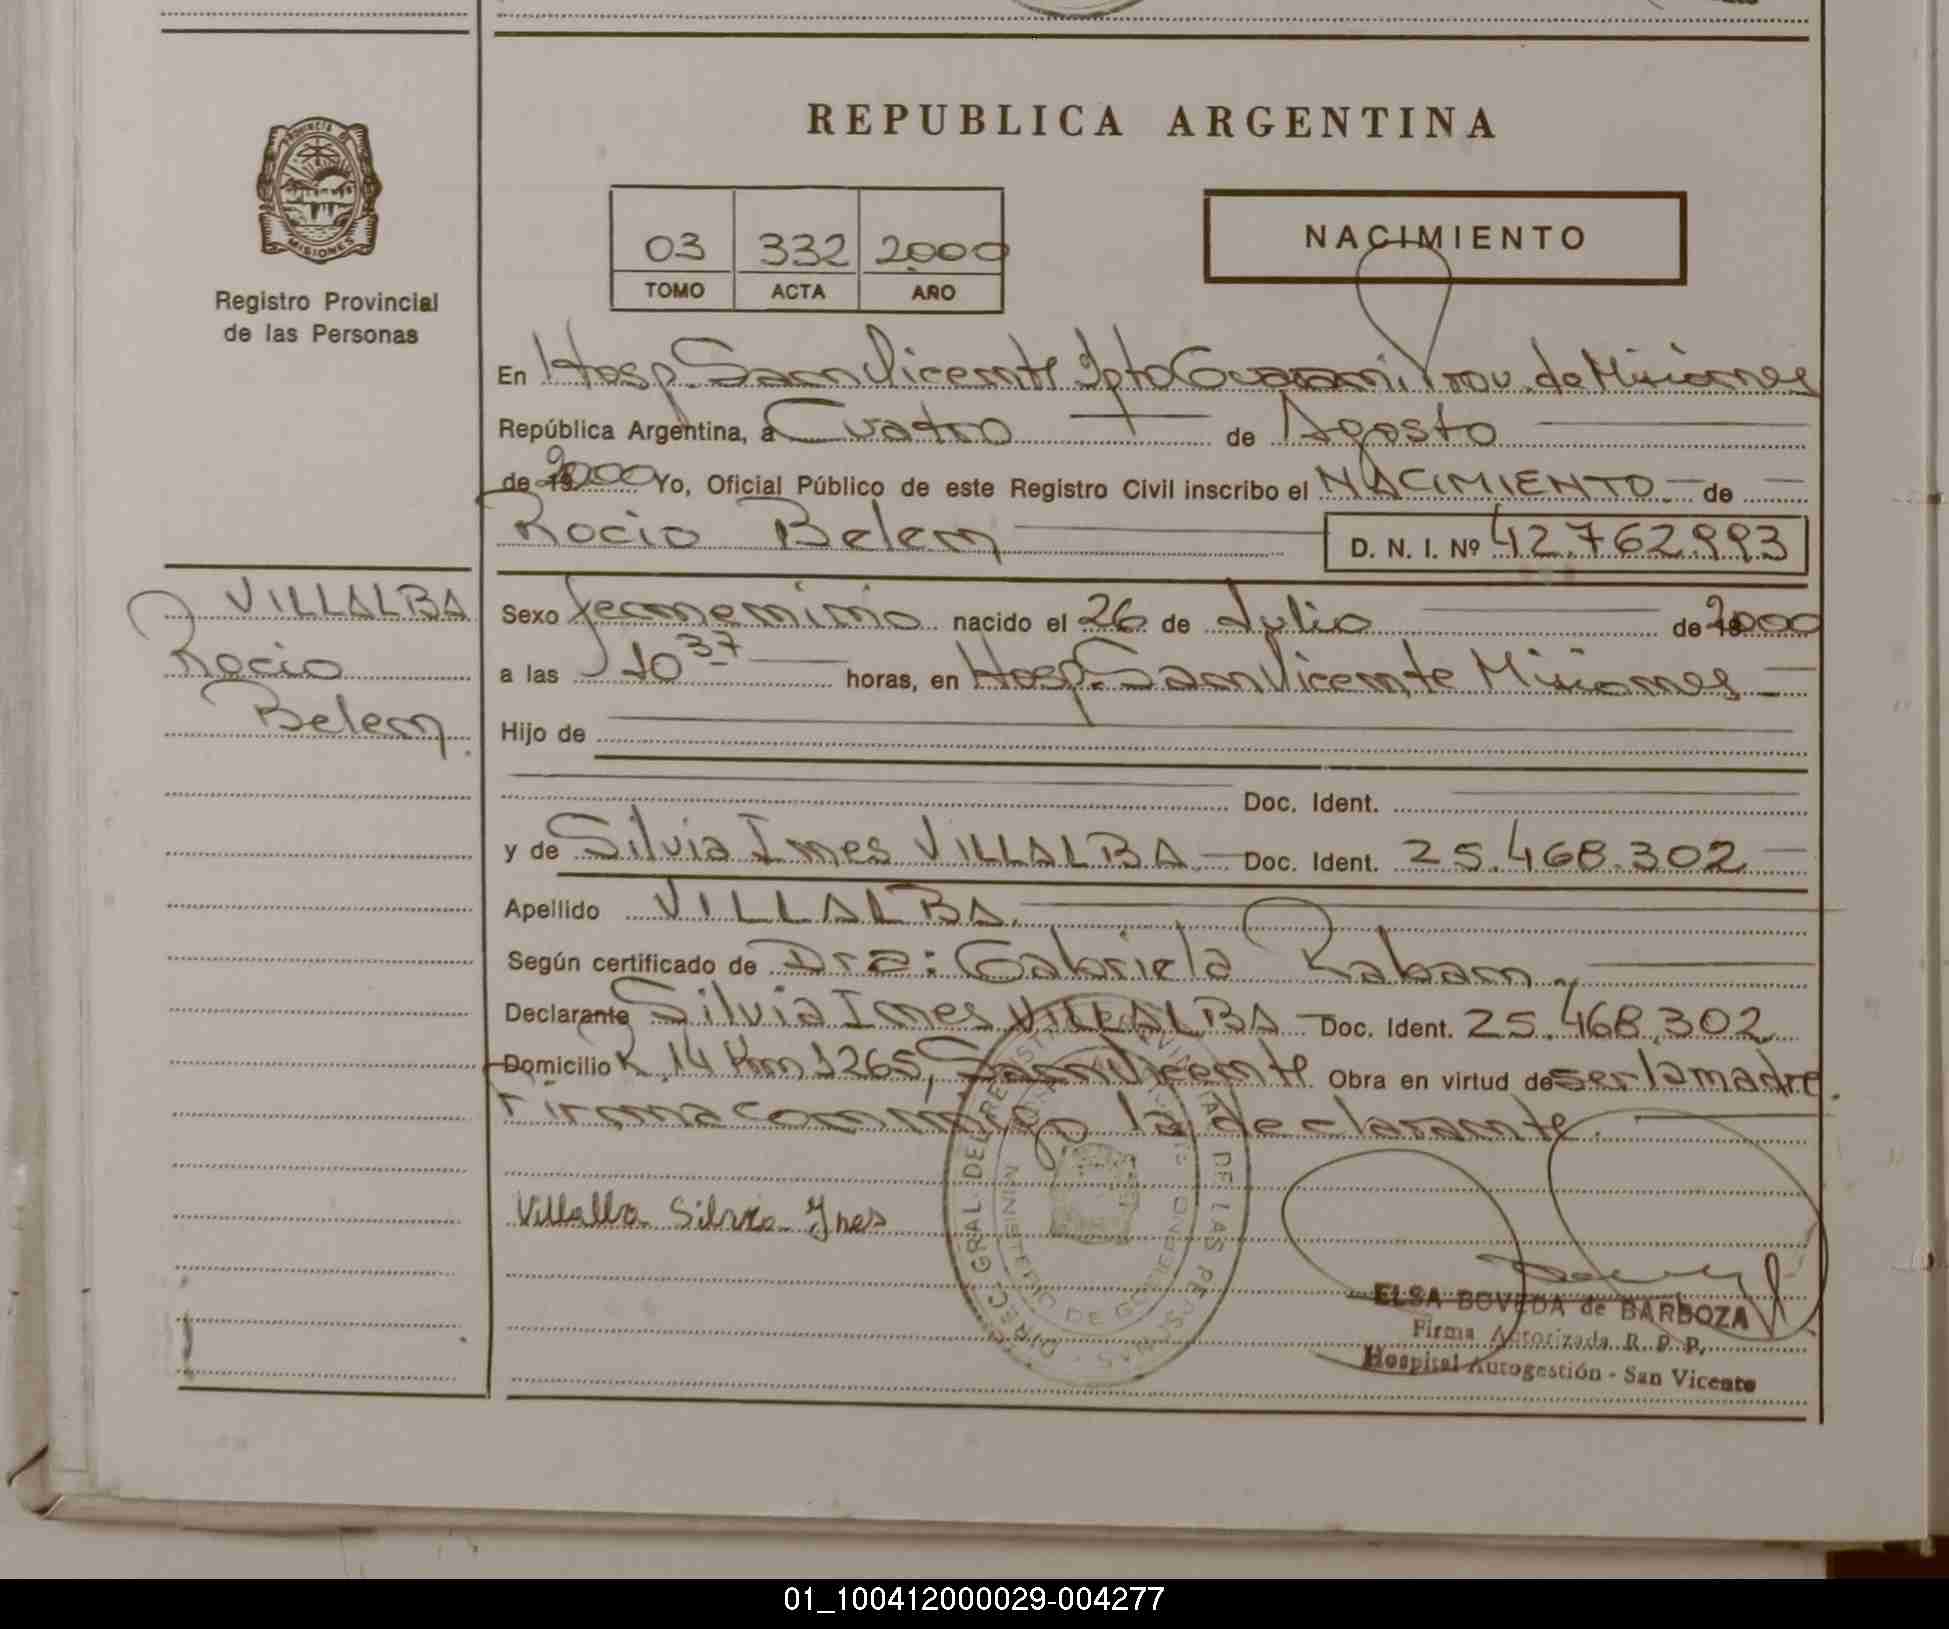 REPUBLICA ARGENTINA
PROVINCIA DE
MISIONES
Registro Provincial
de las Personas
03 332 2000
TOMO ACTA AÑO
NACIMIENTO
En Hosp. San Vicente Dpto Guarani, Prov. de Misiones
República Argentina, a Cuatro de Agosto
de 2000 Yo, Oficial Público de este Registro Civil inscribo el NACIMIENTO de
Rocio Belem D. N. I. Nº 42.762.993
VILLALBA
Rocio
Belem
Sexo femenino nacido el 26 de Julio de 2000
a las 10 37 horas, en Hosp. San Vicente Misiones
Hijo de
Doc. Ident.
y de Silvia Ines VILLALBA Doc. Ident. 25.468.302
Apellido VILLALBA
Según certificado de Dra: Gabriela Raban
Declarante Silvia Ines VILLALBA Doc. Ident. 25.468.302
Domicilio R. 14 Km 1265, San Vicente Obra en virtud de ser la madre.
Firma conmigo la declarante.
Villalba Silvia Ynes
DIREC. GRAL. DEL REGISTRO PROVINCIAL DE LAS PERSONAS
MINISTERIO DE GOBIERNO
ELSA BOVEDA de BARBOZA
Firma Autorizada R. P. P.
Hospital Autogestión - San Vicente
01_100412000029-004277